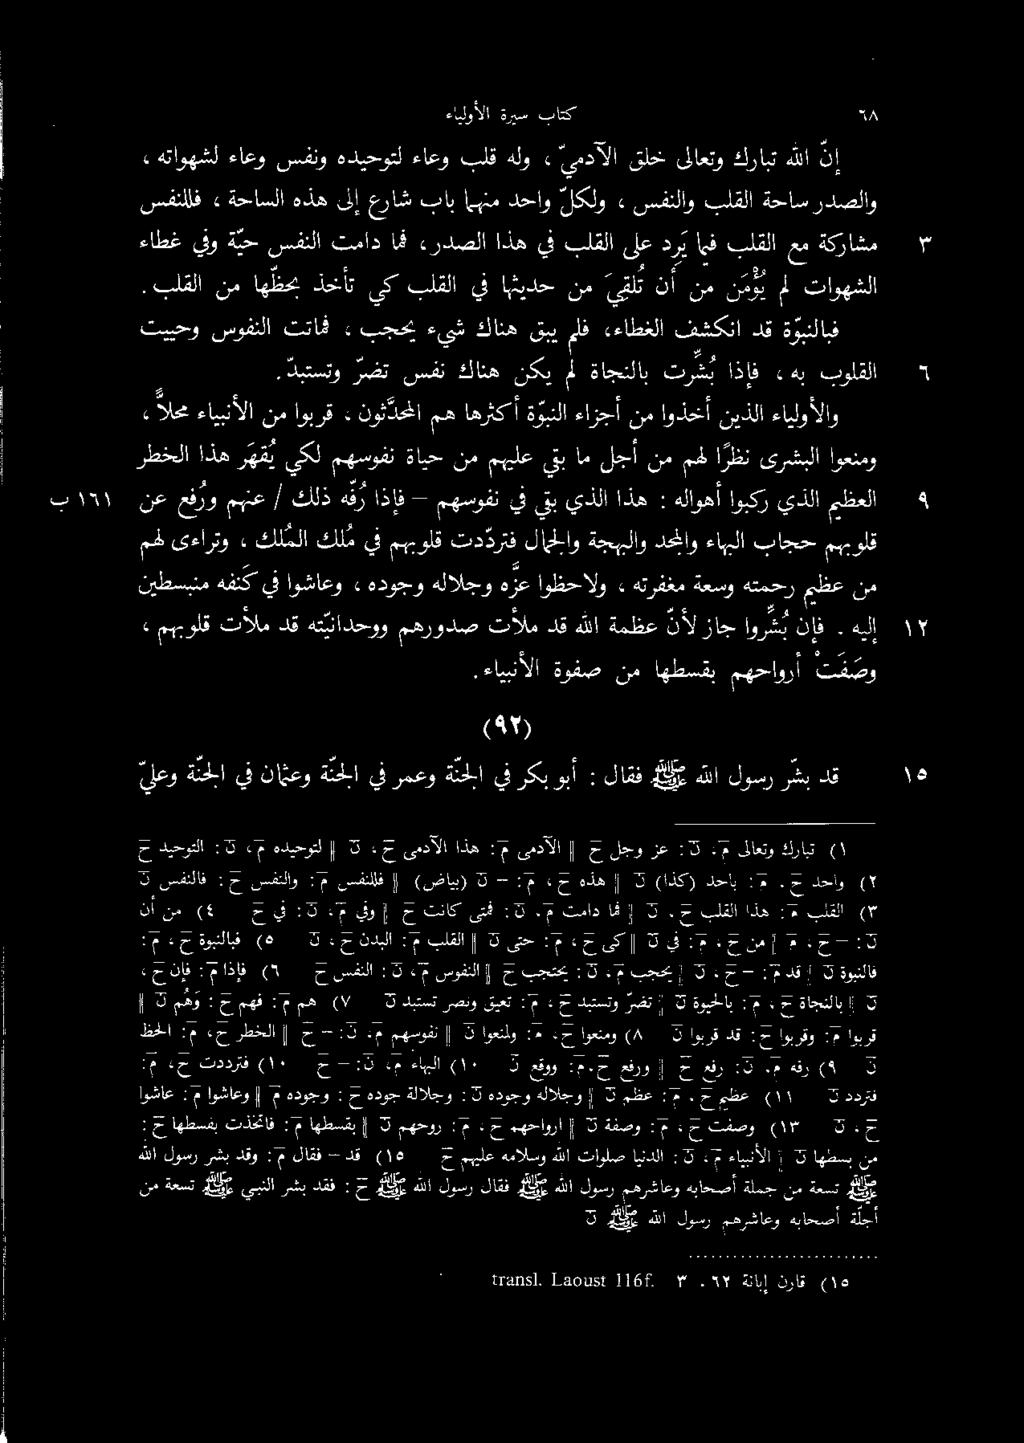 ٦٨
كتاب سيرة الأولياء
إنّ الله تبارك وتعالى خلق الآدميّ ، وله قلب وعاء لتوحيده ونفس وعاء لشهواته ،
والصدر ساحة القلب والنفس ، ولكلّ واحد منهما باب شارع إلى هذه الساحة ، فللنفس
٣ مشاركة مع القلب فيما يَرِد على القلب في هذا الصدر، فما دامت النفس حيّة وفي غطاء
الشهوات لم يُؤْمَن من أن تُلقِيَ من حديثها في القلب كي تأخذ بحظّها من القلب.
فبالنبوّة قد انكشف الغطاء، فلم يبق هناك شيء يحجب ، فماتت النفوس وحييت
٦ القلوب به ، فإذا بُشِّرت بالنجاة لم يكن هناك نفس تضرّ وتستبدّ.
والأولياء الذين أخذوا من أجزاء النبوّة أكثرها هم المحدَّثون ، قربوا من الأنبياء محلاًّ ،
ومنعوا البشرى نظرًا لهم من أجل ما بقي عليهم من حياة نفوسهم لكي يُقهَر هذا الخطر
٩ العظيم الذي ركبوا أهواله : هذا الذي بقي في نفوسهم – فإذا رُفِّه ذلك / عنهم ورُفع عن ١٦١ ب
قلوبهم حجاب البهاء والمجد والبهجة والجمال فتردّدت قلوبهم في مُلك المُلك ، وتراءى لهم
من عظيم رحمته وسعة مغفرته ، ولاحظوا عزَّه وجلاله وجوده ، وعاشوا في كَنفه منبسطين
١٢ إليه . فإن بُشِّروا جاز لأنّ عظمة الله قد ملأت صدورهم ووحدانيّته قد ملأت قلوبهم ،
وصَفَتْ أرواحهم بقسطها من صفوة الأنبياء.
(٩٢)
١٥ قد بشّر رسول الله ﷺ فقال : أبو بكر في الجنّة وعمر في الجنّة وعثمان في الجنّة وعليّ
١) تبارك وتعالى م ، ن : عز وجل ح || الآدمى م : هذا الآدمى ح ، ن || لتوحيده م ، ن : التوحيد ح
٢) واحد ح ، م : باحد (كذا) ن || هذه ح ، م : – ن (بياض) || فللنفس م : والنفس ح : فالنفس ن
٣) القلب م : هذا القلب ح ، ن || فما دامت م ، ن : فمتى كانت ح || وفي م ، ن : في ح ٤) من أن
ن : – ح ، م || من ح ، م : في ن || كى ح ، م : حتى ن || القلب م : البدن ح ، ن ٥) فبالنبوة ح ، م :
فالنبوة ن || قد م : – ح ، ن || يحجب م ، ن : يحتجب ح || النفوس م ، ن : النفس ح ٦) فإذا م : فإن ح ،
ن || بالنجاة ح ، م : بالحيوة ن || تضرّ وتستبد ح ، م : تعيق وتصر تستبد ن ٧) هم م : فهم ح : وَهُم ن ||
قربوا م : وقربوا ح : قد قربوا ن ٨) ومنعوا ح ، م : ولمنعوا ن || نفوسهم م ، ن : – ح || الخطر ح ، م : الحظ
ن ٩) رفه م ، ن : رفع ح || ورفع ح ، م : ووقع ن ١٠) البهاء م ، ن : – ح ١٠) فترددت ح ، م :
فتردد ن ١١) عظيم ح ، م : عظم ن || وجلاله وجوده ن : وجلالة جوده ح : وجوده م || وعاشوا م : عاشوا
ح ، ن ١٣) وصفت ح ، م : وصفة ن || ارواحهم ح ، م : روحهم ن || بقسطها م : فاتخذت بقسطها ح :
من بسطها ن || الأنبياء م ، ن : صلوات الله وسلامه عليهم ح ١٥) قد – فقال م : وقد بشر رسول الله
ﷺ تسعة من جملة أصحابه وعاشرهم رسول الله ﷺ فقال رسول الله ﷺ ح : فقد بشر النبي ﷺ تسعة من
أجلّة أصحابه وعاشرهم رسول الله ﷺ ن
١٥) قارن إبانة ٦٢ ، ٣ transl. Laoust 116f.